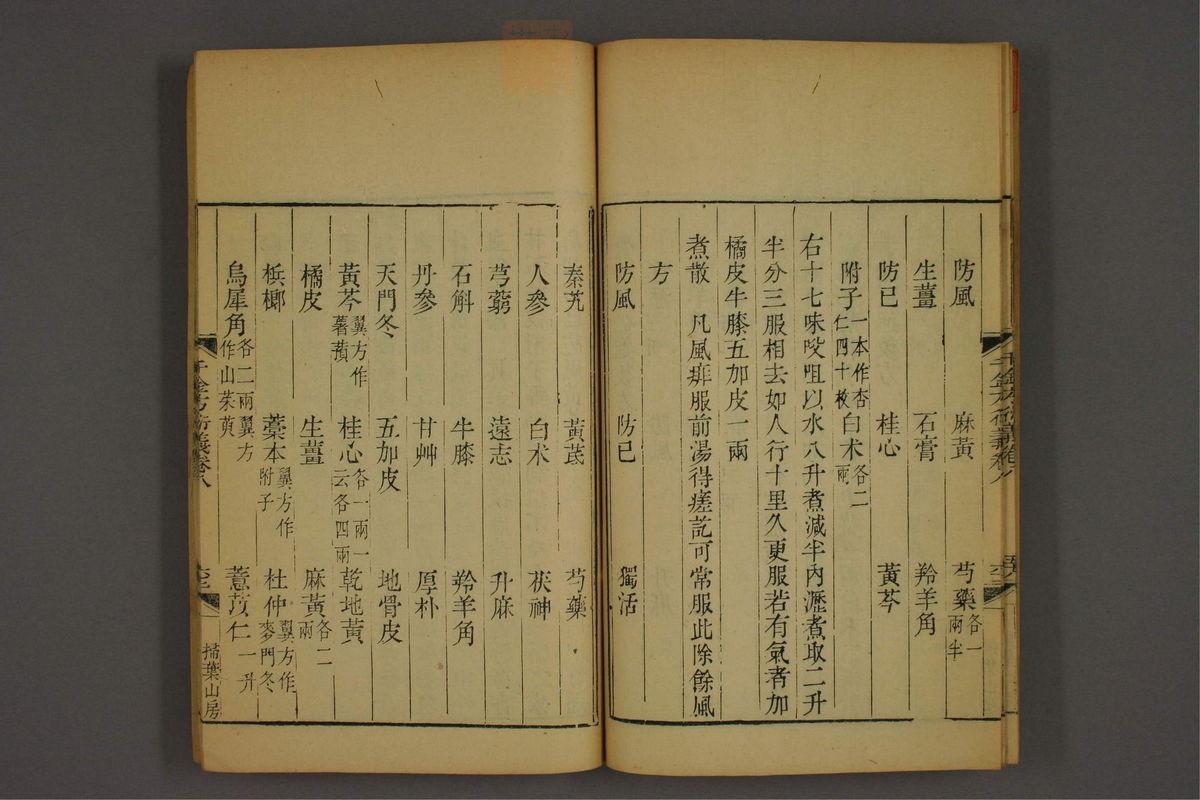 防風 麻黃 芍藥各一兩半
生薑 石膏 羚羊角
防已 桂心 黃芩
附子一本作杏仁四十枚 白术各二兩
右十七味㕮咀以水八升煮減半內瀝煮取二升
半分三服相去如人行十里久更服若有氣者加
橘皮牛膝五加皮一兩
煮散 凡風痱服前湯得瘥訖可常服此除餘風
方
防風 防已 獨活
秦艽 黃芪 芍藥
人參 白术 茯神
芎藭 遠志 升麻
石斛 牛膝 羚羊角
丹參 甘艸 厚朴
天門冬 五加皮 地骨皮
黃芩翼方作薯蕷 桂心各一兩一云各四兩 乾地黃
橘皮 生薑 麻黃各二兩
檳榔 藁本翼方作附子 杜仲翼方作麥門冬
烏犀角各二兩翼方作山茱萸 薏苡仁一升
千金方衍義卷八
掃葉山房